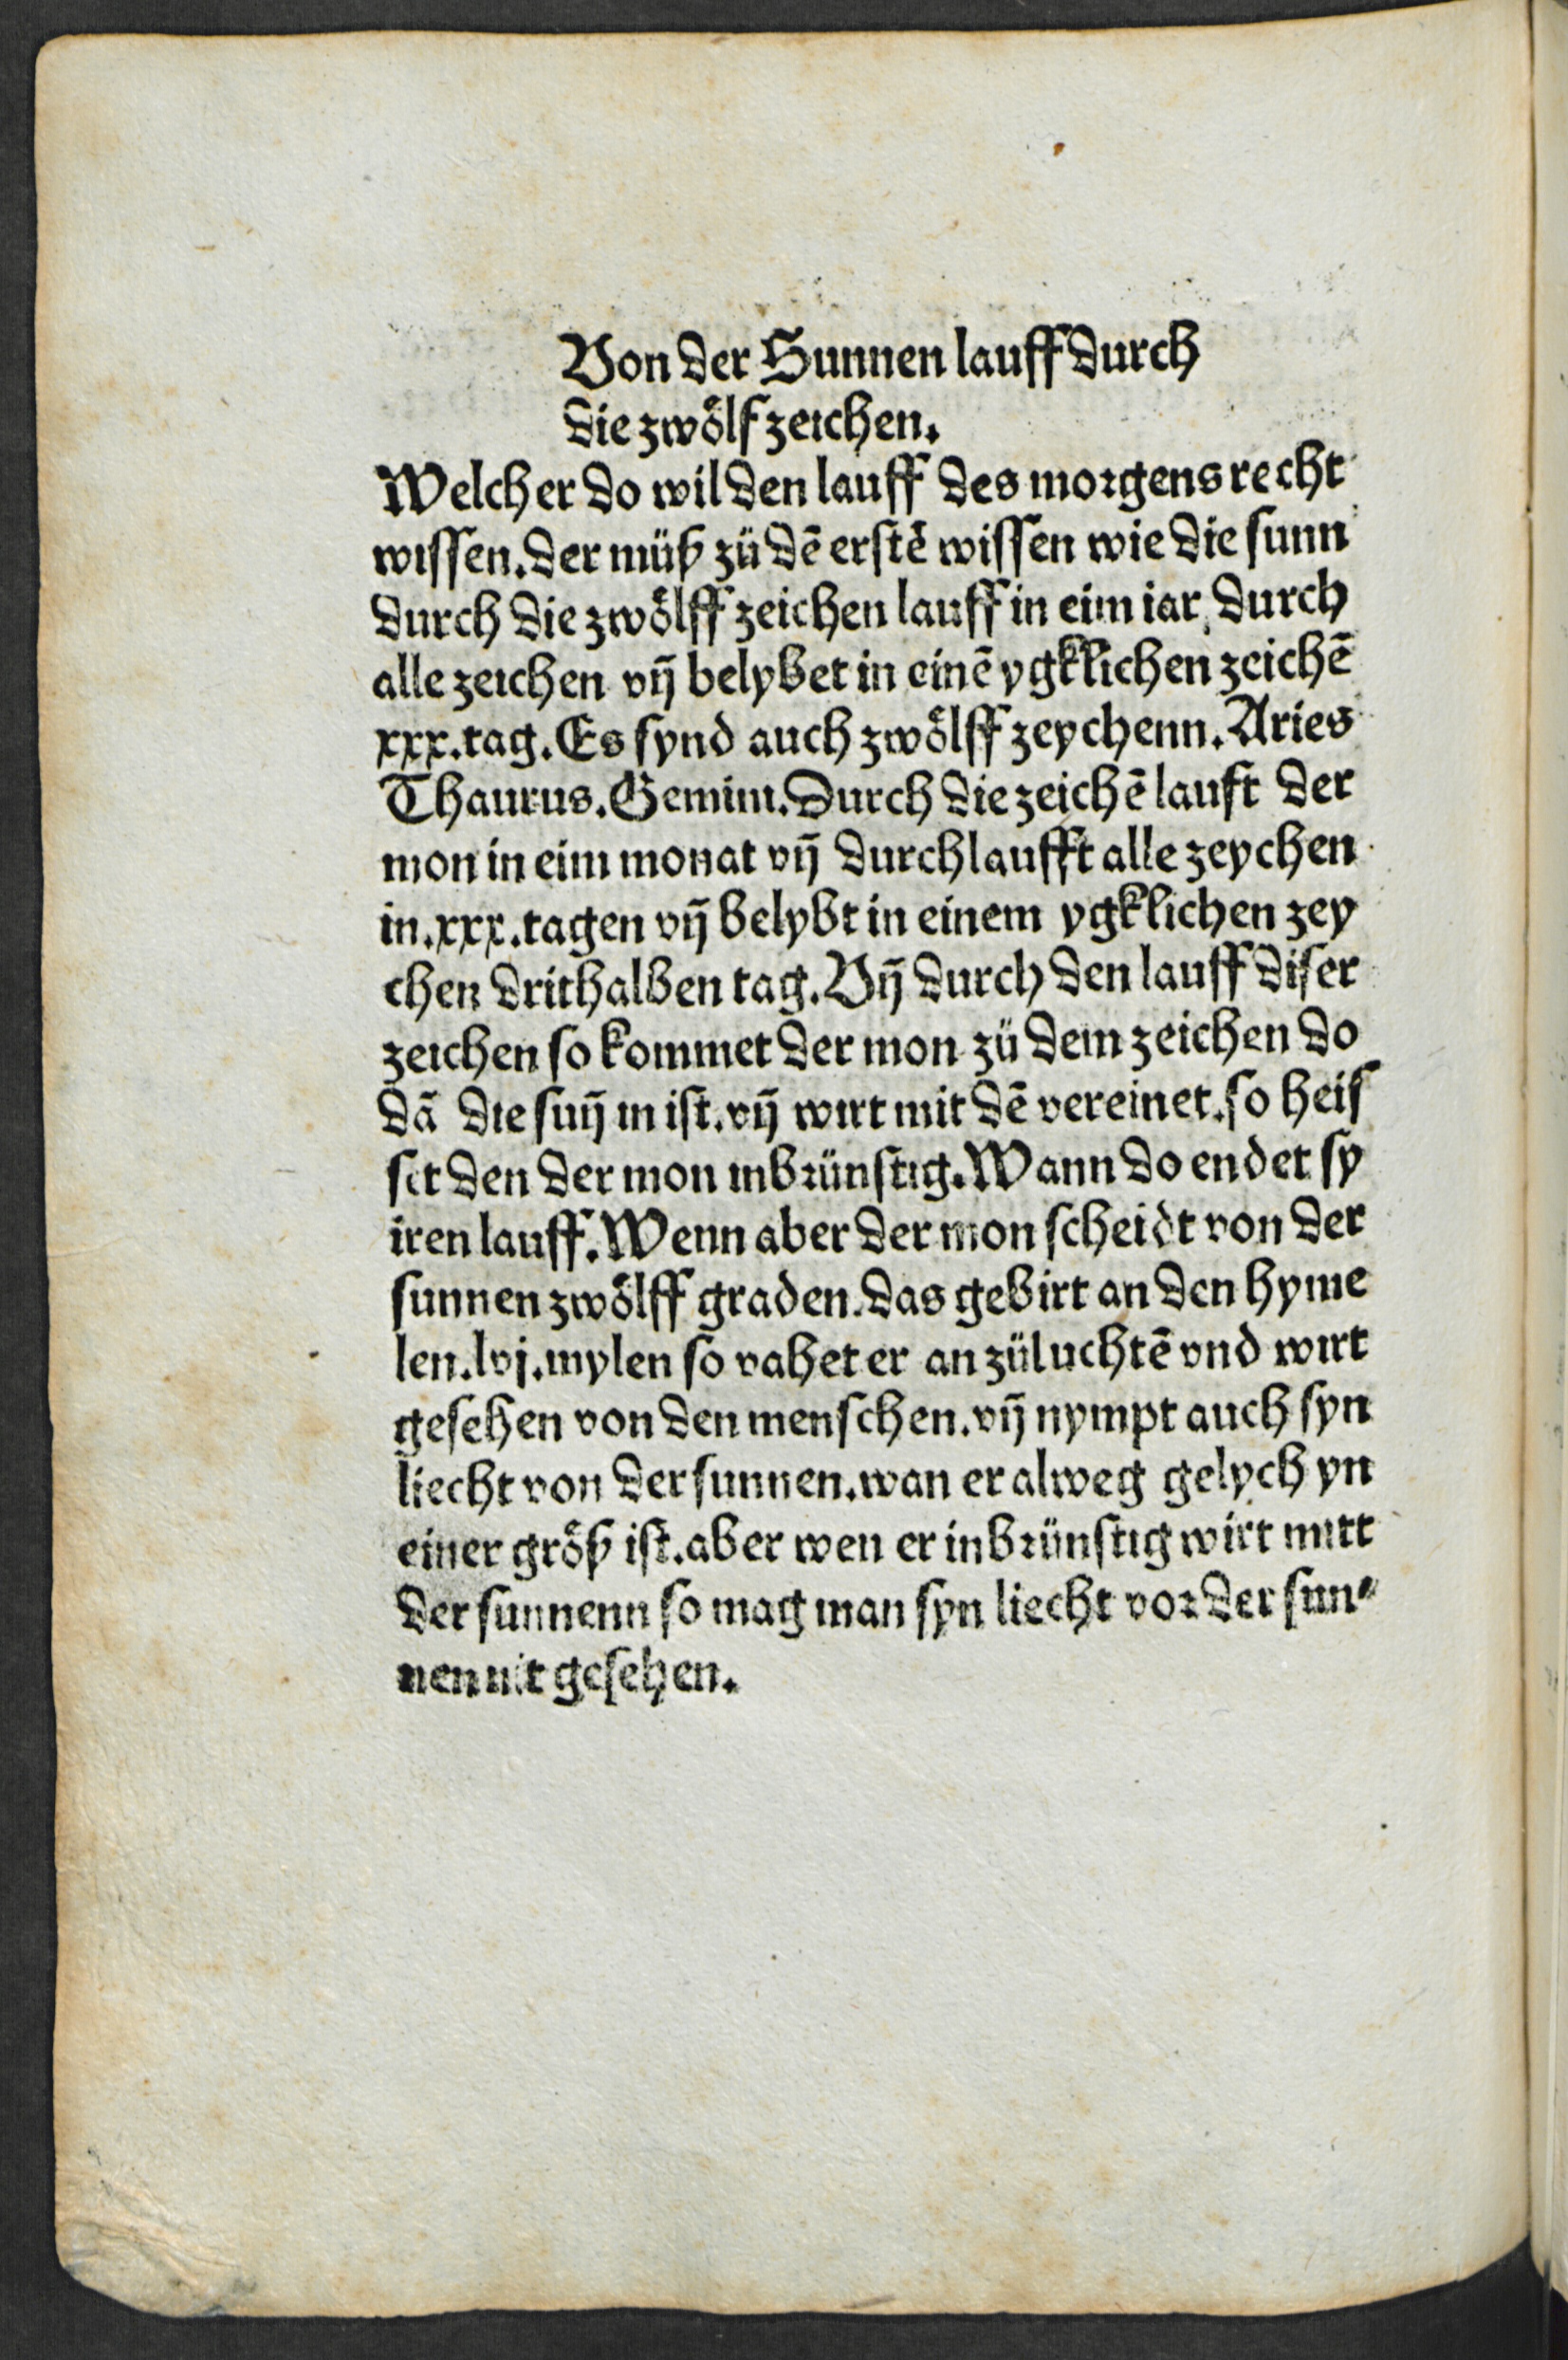 Von der Sunnen lauff durch
die zwoͤlf zeichen.
Welcher do wil den lauff des morgens recht
wissen. der muͤß zuͤ dē erstē wissen wie die sunn
durch die zwoͤlff zeichen lauff in eim iar, durch
alle zeichen vn̄ belybet in einē ygklichen zeichē
xxx.tag. Es synd auch zwoͤlff zeychenn. Aries
Thaurus. Gemini. Durch die zeichē lauft der
mon in eim monat vn̄ durchlaufft alle zeychen
in.xxx.tagen vn̄ belybt in einem ygklichen zey
chen drithalben tag. Vn̄ durch den lauff diser
zeichen so kommet der mon zuͤ dem zeichen do
dā die sun̄ in ist. vn̄ wirt mit dē vereinet. so heis
set den der mon inbrünstig. Wann do endet sy
iren lauff. Wenn aber der mon scheidt von der
sunnen zwoͤlff graden. das gebirt an den hyme
len.lvj.mylen so vahet er an züluchtē vnd wirt
gesehen von den menschen. vn̄ nympt auch syn
liecht von der sunnen. wan er alweg gelych yn
einer groͤß ist. aber wen er inbrünstig wirt mitt
der sunnenn so mag man syn liecht vor der sun⸗
nen nit gesehen.